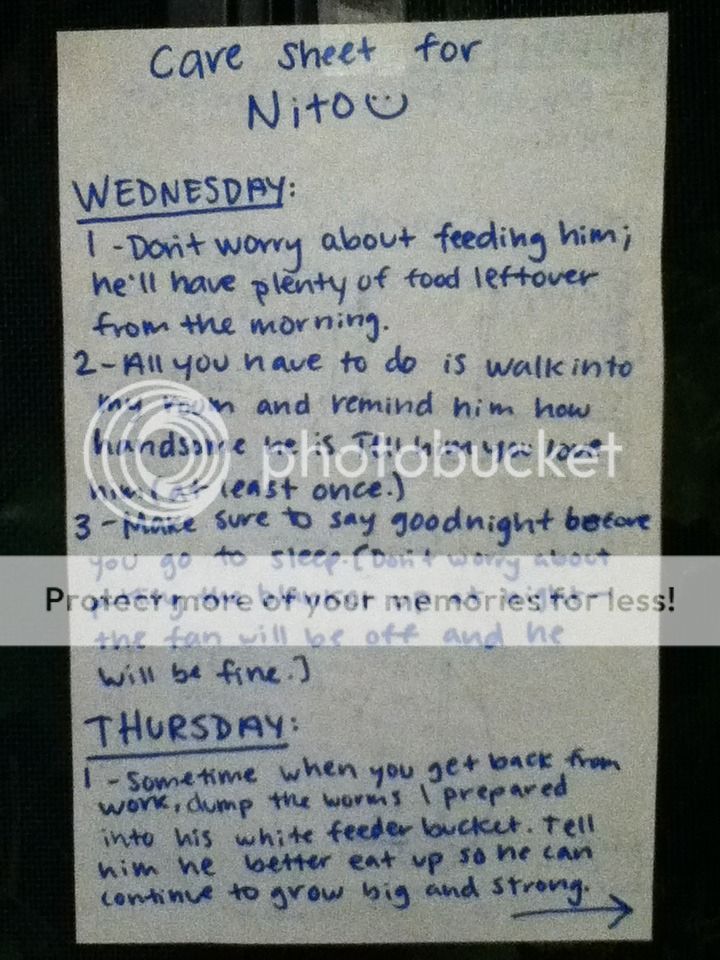 Care sheet for
Nito
WEDNESDAY:
1 - Don't worry about feeding him;
he'll have plenty of food leftover
from the morning.
2 - All you have to do is walk into
my room and remind him how
handsome he is. Tell him you love
him. (at least once.)
photobucket
3 - Make sure to say goodnight before
you go to sleep. (Don't worry about
putting the blanket up at night -
Protect more of your memories for less!
the fan will be off and he
will be fine.)
THURSDAY:
1 - Sometime when you get back from
work, dump the worms I prepared
into his white feeder bucket. Tell
him he better eat up so he can
continue to grow big and strong.